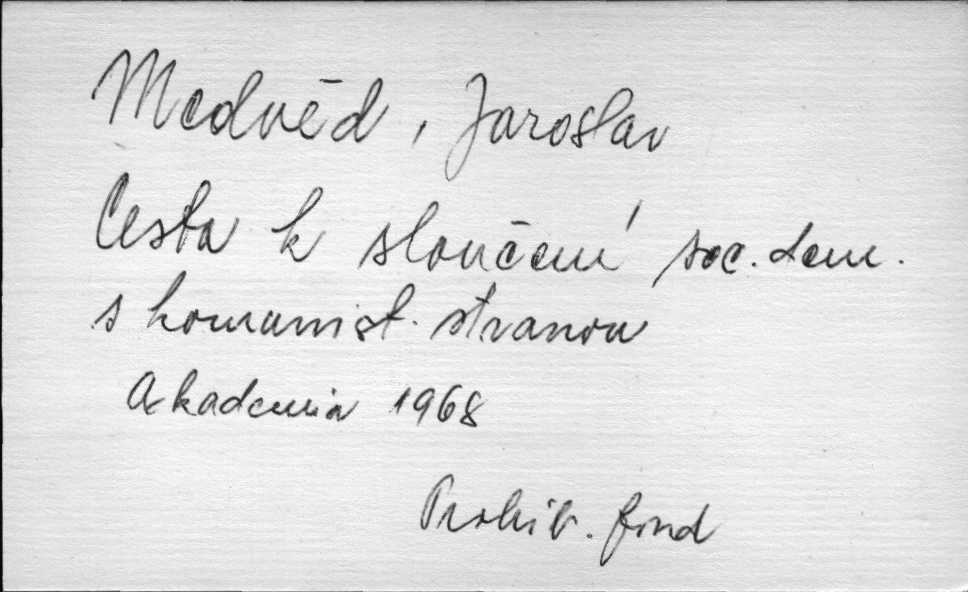 Medvěd, Jaroslav
Cesta k sloučení soc. dem.
s komunist. stranou
Akademia 1968
Prohib. fond